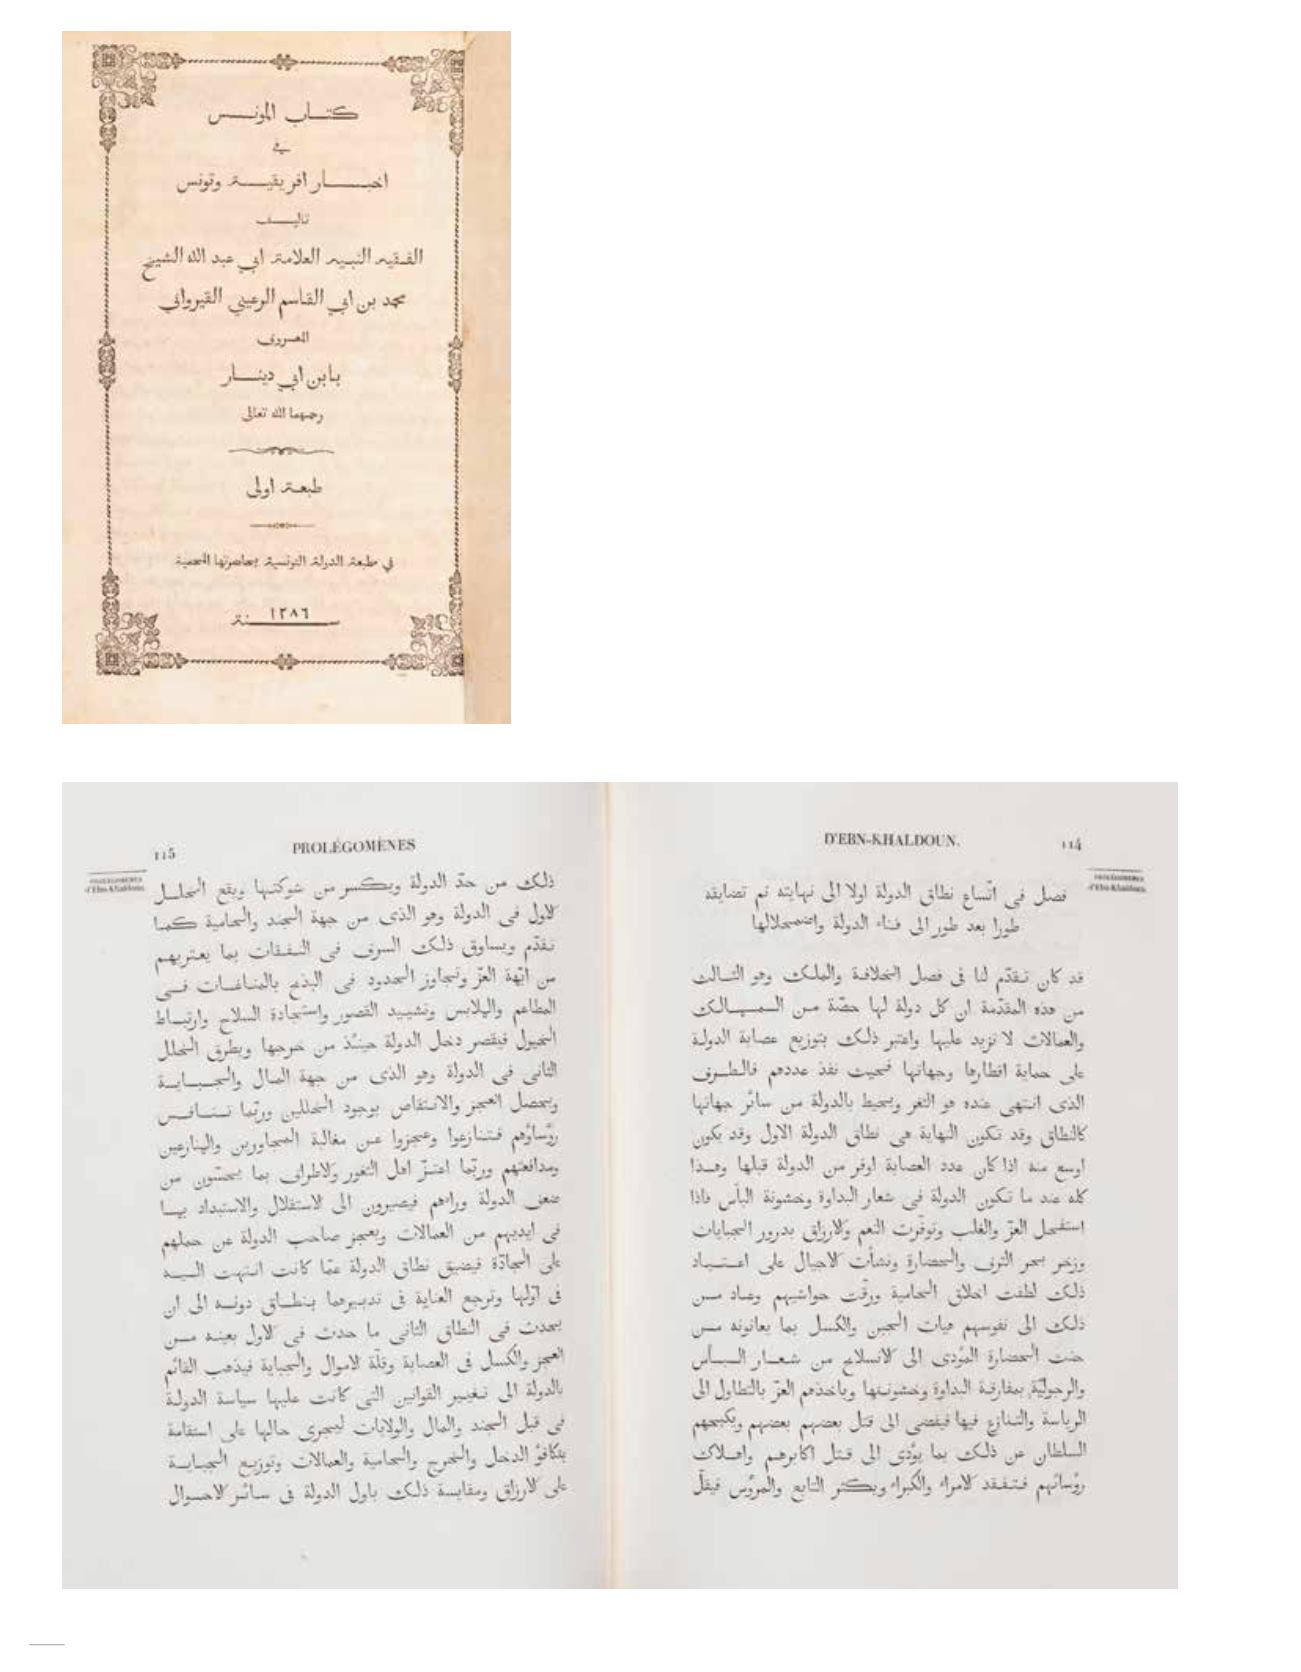 كتاب المونس
في
اخبار افريقية وتونس
تاليف
الفقيه النبيه العلامة ابي عبد الله الشيخ
محمد بن ابي القاسم الرعيني القيرواني
المعروف
بابن ابي دينار
رحمهما الله تعالى
طبعة اولى
في طبعة الدولة التونسية بحاضرتها المحمية
سنة ١٢٨٦
D'EBN-KHALDOUN. 114
PROLÉGOMÈNES
d'Ebn-Khaldoun.
فصل فى اتّساع نطاق الدولة اولا الى نهايته ثم تضايقه
طورا بعد طور الى فناء الدولة واضمحلالها
قد كان تقدّم لنا فى فصل الخلافة والملك وهو الثالث
من هذه المقدّمة ان كل دولة لها حصّة من الممالك
والعمالات لا تزيد عليها واعتبر ذلك بتوزيع عصابة الدولة
على حماية اقطارها وجهاتها فحيث نفذ عددهم فالطرف
الذى انتهى عنده هو الثغر ويحيط بالدولة من سائر جهاتها
كالنطاق وقد تكون النهاية هى نطاق الدولة الاول وقد يكون
اوسع منه اذا كان عدد العصابة اوفر من الدولة قبلها وهذا
كله عند ما تكون الدولة فى شعار البداوة وخشونة البأس فاذا
استفحل العزّ والغلب وتوفّرت النعم والارزاق بدرور الجبايات
وزخر بحر الترف والحضارة ونشأت الاجيال على اعتياد
ذلك لطفت اخلاق الحامية ورقّت حواشيهم وعاد من
ذلك الى نفوسهم هيات الجبن والكسل بما يعانونه من
خنث الحضارة المؤدى الى الانسلاخ من شعار البأس
والرجوليّة بمفارقة البداوة وخشونتها وباخذهم العزّ بالتطاول الى
الرياسة والتنازع فيها فيفضى الى قتل بعضهم بعضهم ويكبحهم
السلطان عن ذلك بما يؤدى الى قتل اكابرهم واهلاك
رؤسائهم فتفقد الامراء والكبراء ويكثر التابع والمرؤس فيقلّ
PROLÉGOMÈNES 115
PROLÉGOMÈNES
d'Ebn-Khaldoun.
ذلك من حدّ الدولة ويكسر من شوكتها ويقع الخلل
الاول فى الدولة وهو الذى من جهة الجند والحامية كما
تقدّم ويساوق ذلك السرف فى النفقات بما يعتريهم
من ابّهة العزّ وتجاوز الحدود فى البذخ بالمناغات فى
المطاعم والملابس وتشييد القصور واستجادة السلاح وارتباط
الخيول فيقصر دخل الدولة حينئذ من خرجها ويطرق الخلل
الثانى فى الدولة وهو الذى من جهة المال والجباية
ويحصل العجز والانتقاص بوجود الخللين وربّما تنافس
رؤساؤهم فتنازعوا وعجزوا عن مغالبة المجاورين والمنازعين
ومدافعتهم وربّما اعتزّ اهل الثغور والاطراف بما يحسّون من
ضعف الدولة وراءهم فيصيرون الى الاستقلال والاستبداد بما
فى ايديهم من العمالات ويعجز صاحب الدولة عن حملهم
على الجادّة فيضيق نطاق الدولة عمّا كانت انتهت اليه
فى اوّلها وترجع العناية فى تدبيرها بنطاق دونه الى ان
يحدث فى النطاق الثانى ما حدث فى الاول بعينه من
العجز والكسل فى العصابة وقلّة الاموال والجباية فيذهب القائم
بالدولة الى تغيير القوانين التى كانت عليها سياسة الدولة
فى قبل الجند والمال والولايات ليجرى حالها على استقامة
بتكافؤ الدخل والخرج والحامية والعمالات وتوزيع الجباية
على الارزاق ومقايسة ذلك باول الدولة فى سائر الاحوال